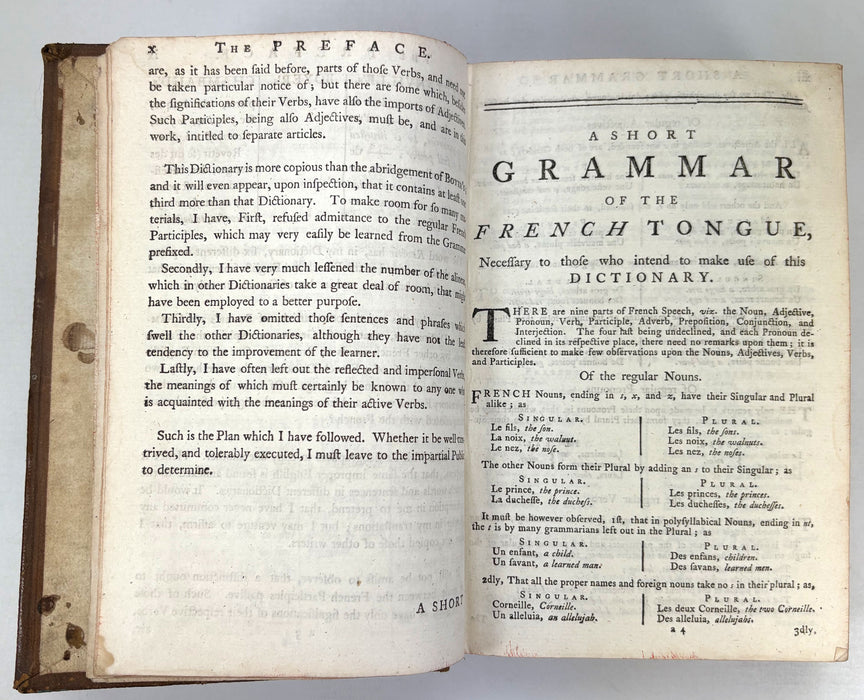 x THE PREFACE.
are, as it has been ſaid before, parts of thoſe Verbs, and need not
be taken particular notice of; but there are ſome which, beſides
the ſignifications of their Verbs, have alſo the imports of Adjectives,
Such Participles, being alſo Adjectives, muſt be, and are in this
work, intitled to ſeparate articles.
This Dictionary is more copious than the abridgement of Boyer's,
and it will even appear, upon inſpection, that it contains at leaſt one
third more than that Dictionary. To make room for ſo many ma-
terials, I have, Firſt, refuſed admittance to the regular French
Participles, which may very eaſily be learned from the Grammar
prefixed.
Secondly, I have very much leſſened the number of the alineas,
which in other Dictionaries take a great deal of room, that might
have been employed to a better purpoſe.
Thirdly, I have omitted thoſe ſentences and phraſes which
ſwell the other Dictionaries, although they have not the leaſt
tendency to the improvement of the learner.
Laſtly, I have often left out the reflected and imperſonal Verbs,
the meanings of which muſt certainly be known to any one who
is acquainted with the meanings of their active Verbs.
Such is the Plan which I have followed. Whether it be well con-
trived, and tolerably executed, I muſt leave to the impartial Public
to determine.
A SHORT
A SHORT
GRAMMAR
OF THE
FRENCH TONGUE,
Neceſſary to thoſe who intend to make uſe of this
DICTIONARY.
THERE are nine parts of French Speech, viz. the Noun, Adjective,
Pronoun, Verb, Participle, Adverb, Prepoſition, Conjunction, and
Interjection. The four laſt being undeclined, and each Pronoun de-
clined in its reſpective place, there need no remarks upon them; it is
therefore ſufficient to make few obſervations upon the Nouns, Adjectives, Verbs,
and Participles.
Of the regular Nouns.
FRENCH Nouns, ending in s, x, and z, have their Singular and Plural
alike; as
SINGULAR. PLURAL.
Le fils, the ſon. Les fils, the ſons.
La noix, the walnut. Les noix, the walnuts.
Le nez, the noſe. Les nez, the noſes.
The other Nouns form their Plural by adding an s to their Singular; as
SINGULAR. PLURAL.
Le prince, the prince. Les princes, the princes.
La ducheſſe, the ducheſs. Les ducheſſes, the ducheſſes.
It muſt be however obſerved, 1ſt, that in polyſyllabical Nouns, ending in nt,
the t is by many grammarians left out in the Plural; as
SINGULAR. PLURAL.
Un enfant, a child. Des enfans, children.
Un ſavant, a learned man. Des ſavans, learned men.
2dly, That all the proper names and foreign nouns take no s in their plural; as,
SINGULAR. PLURAL.
Corneille, Corneille. Les deux Corneille, the two Corneille.
Un alleluia, an allelujah. Des alleluia, allelujahs.
a 4 3dly,